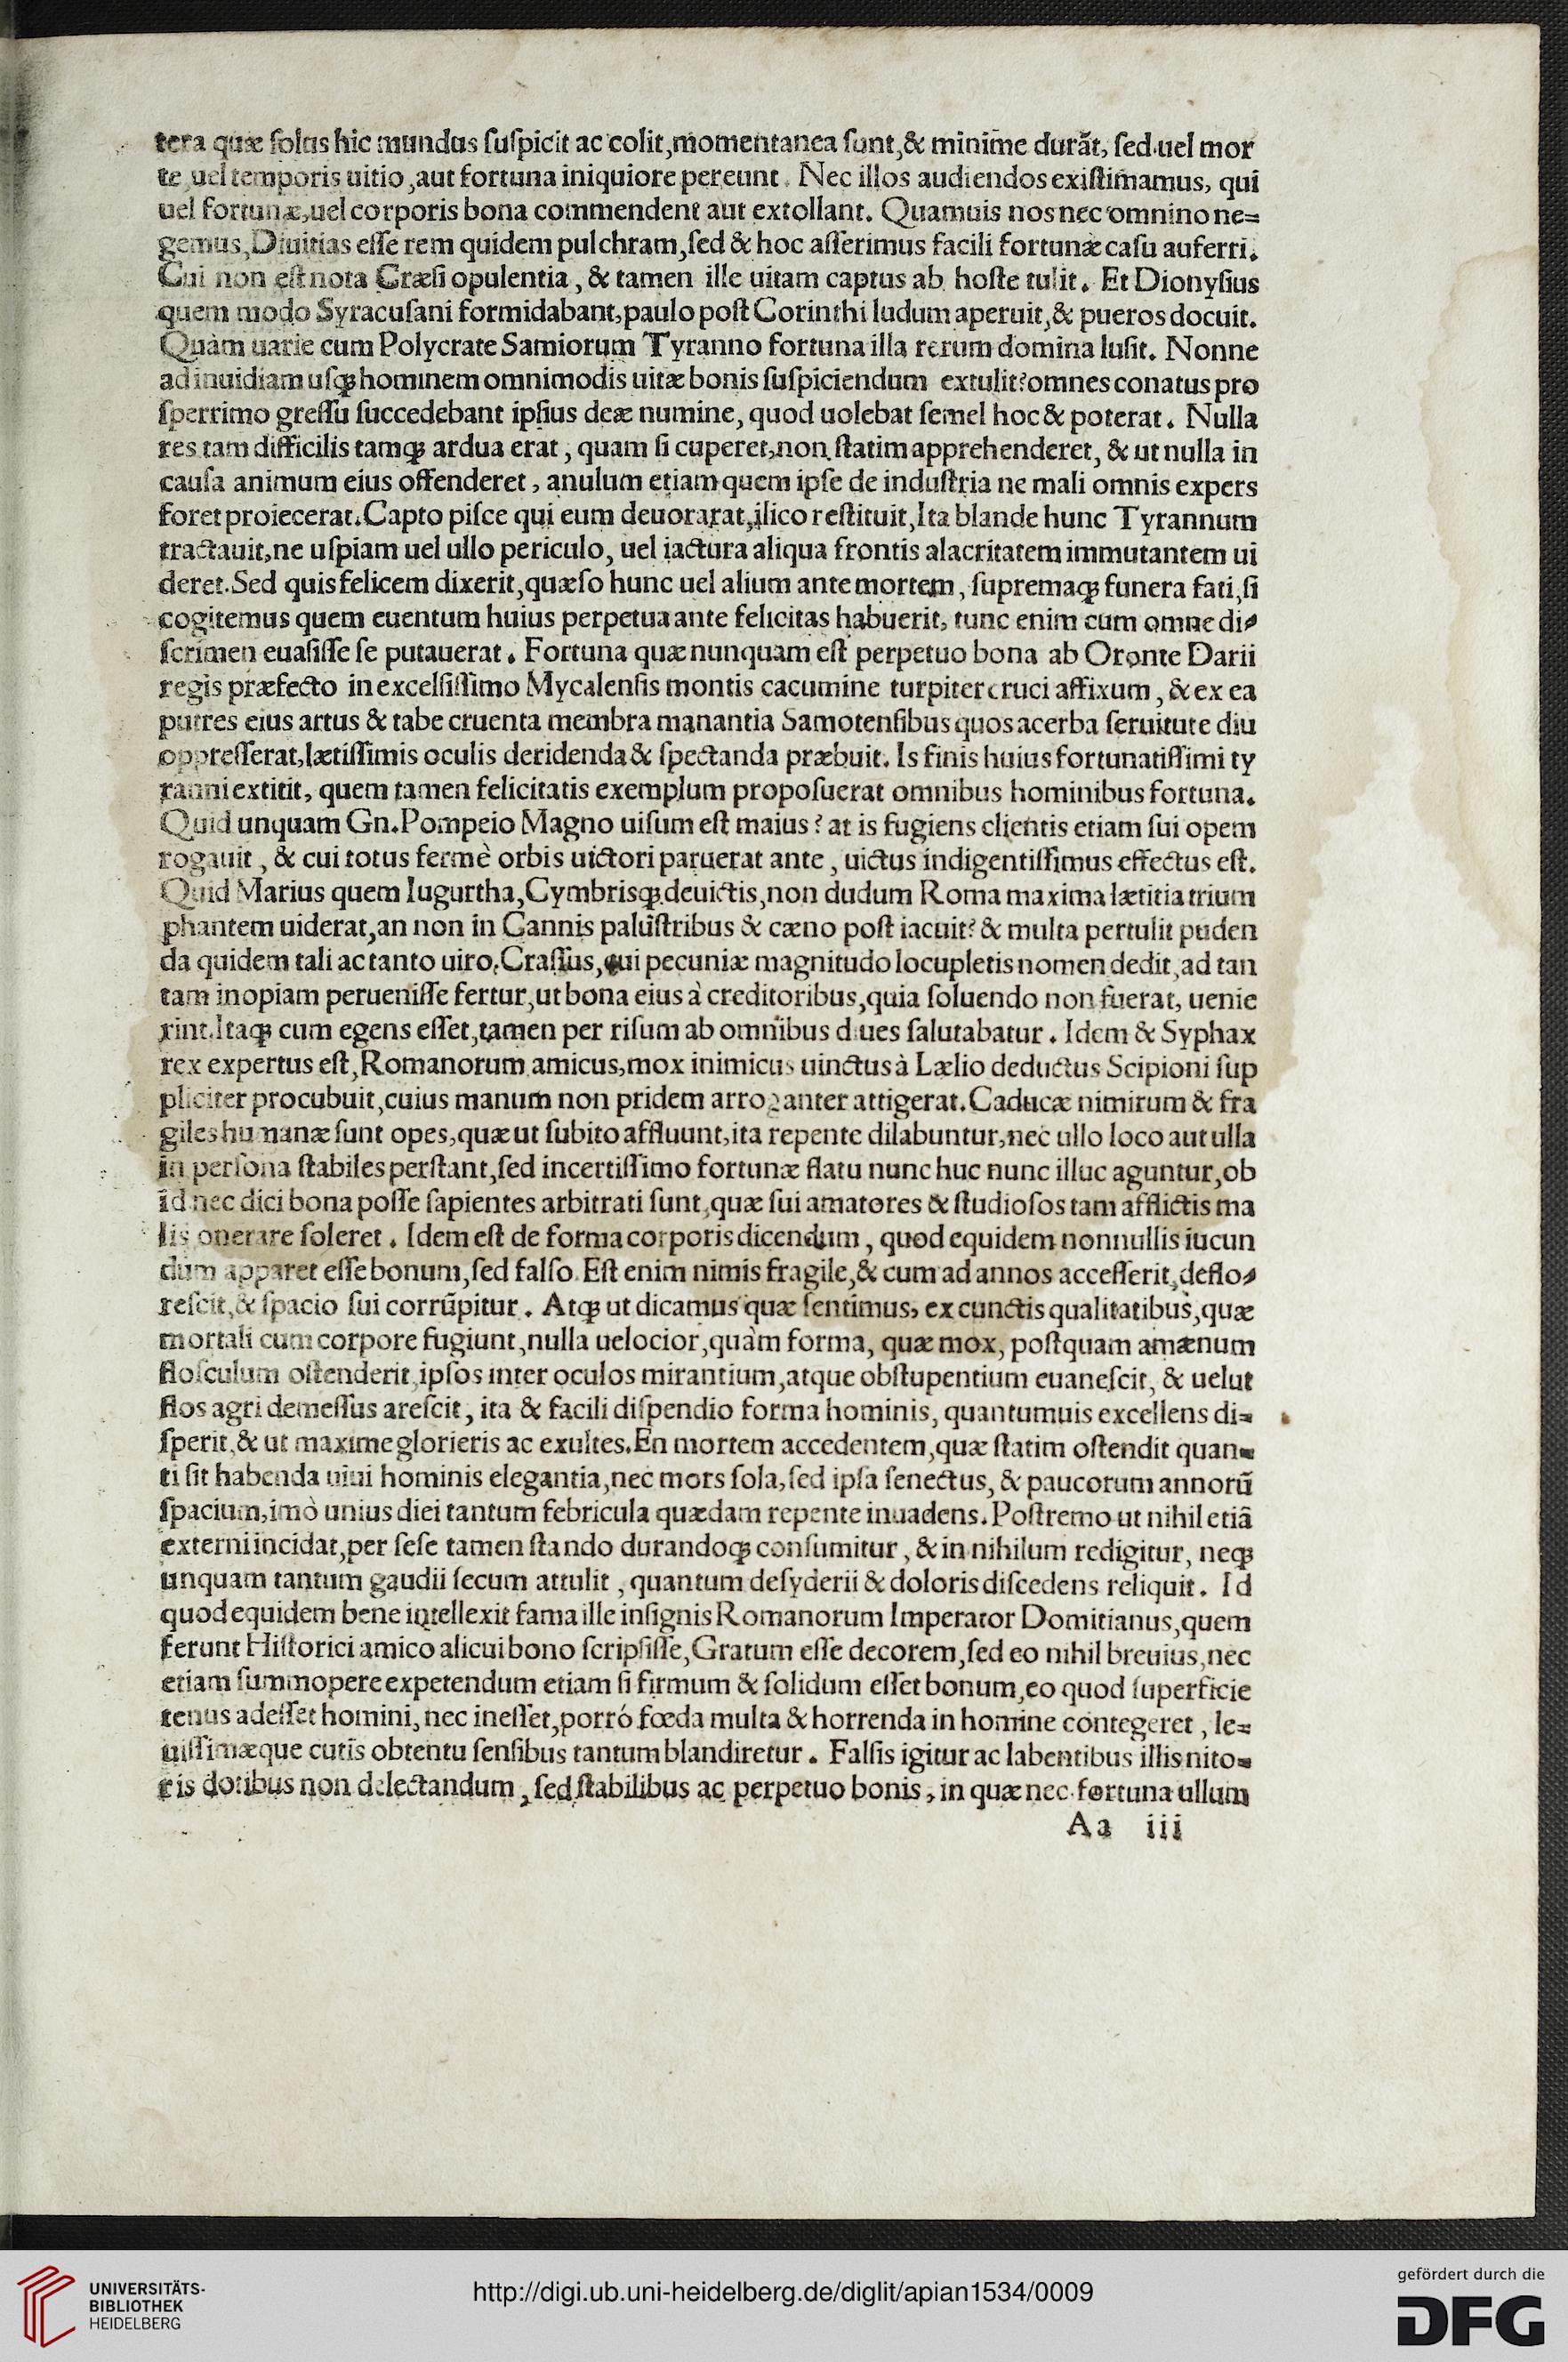 tera quæ solus hic mundus suspicit ac colit, momentanea sunt, & minime durãt, sed uel mor
te uel temporis uitio, aut fortuna iniquiore pereunt. Nec illos audiendos existimamus, qui
uel fortunæ, uel corporis bona commendent aut extollant. Quamuis nos nec omnino ne=
gemus, Diuitias esse rem quidem pulchram, sed & hoc asserimus facili fortunæ casu auferri.
Cui non est nota Cræsi opulentia, & tamen ille uitam captus ab hoste tulit. Et Dionysius
quem modo Syracusani formidabant, paulo post Corinthi ludum aperuit, & pueros docuit.
Quàm uarie cum Polycrate Samiorum Tyranno fortuna illa rerum domina lusit. Nonne
ad inuidiam usq; hominem omnimodis uitæ bonis suspiciendum extulit? omnes conatus pro
sperrimo gressu succedebant ipsius deæ numine, quod uolebat semel hoc & poterat. Nulla
res tam difficilis tamq; ardua erat, quam si cuperet, non statim apprehenderet, & ut nulla in
causa animum eius offenderet, anulum etiam quem ipse de industria ne mali omnis expers
foret proiecerat. Capto pisce qui eum deuorarat, ilico restituit, Ita blande hunc Tyrannum
tractauit, ne uspiam uel ullo periculo, uel iactura aliqua frontis alacritatem immutantem ui
deret. Sed quis felicem dixerit, quæso hunc uel alium ante mortem, supremaq; funera fati, si
cogitemus quem euentum huius perpetua ante felicitas habuerit, tunc enim cum omne di=
scrimen euasisse se putauerat. Fortuna quæ nunquam est perpetuo bona ab Oronte Darii
regis præfecto in excelsissimo Mycalensis montis cacumine turpiter cruci affixum, & ex ea
putres eius artus & tabe cruenta membra manantia Samotensibus quos acerba seruitute diu
oppresserat, lætissimis oculis deridenda & spectanda præbuit. Is finis huius fortunatissimi ty
ranni extitit, quem tamen felicitatis exemplum proposuerat omnibus hominibus fortuna.
Quid unquam Gn. Pompeio Magno uisum est maius? at is fugiens clientis etiam sui opem
rogauit, & cui totus fermè orbis uictori paruerat ante, uictus indigentissimus effectus est.
Quid Marius quem Iugurtha, Cymbrisq; deuictis, non dudum Roma maxima lætitia trium
phantem uiderat, an non in Cannis palustribus & cæno post iacuit? & multa pertulit puden
da quidem tali ac tanto uiro. Crassus, cui pecuniæ magnitudo locupletis nomen dedit, ad tan
tam inopiam peruenisse fertur, ut bona eius à creditoribus, quia soluendo non fuerat, uenie
rint. Itaq; cum egens esset, tamen per risum ab omnibus diues salutabatur. Idem & Syphax
rex expertus est, Romanorum amicus, mox inimicus uinctus à Lælio deductus Scipioni sup
pliciter procubuit, cuius manum non pridem arroganter attigerat. Caducæ nimirum & fra
giles humanæ sunt opes, quæ ut subito affluunt, ita repente dilabuntur, nec ullo loco aut ulla
in persona stabiles perstant, sed incertissimo fortunæ flatu nunc huc nunc illuc aguntur, ob
id nec dici bona posse sapientes arbitrati sunt, quæ sui amatores & studiosos tam afflictis ma
lis onerare soleret. Idem est de forma corporis dicendum, quod equidem nonnullis iucun
dum apparet esse bonum, sed falso. Est enim nimis fragile, & cum ad annos accesserit, deflo=
rescit, & spacio sui corrũpitur. Atq; ut dicamus quæ sentimus, ex cunctis qualitatibus, quæ
mortali cum corpore fugiunt, nulla uelocior, quàm forma, quæ mox, postquam amænum
flosculum ostenderit, ipsos inter oculos mirantium, atque obstupentium euanescit, & uelut
flos agri demessus arescit, ita & facili dispendio forma hominis, quantumuis excellens di=
sperit, & ut maxime glorieris ac exultes. En mortem accedentem, quæ statim ostendit quan=
ti sit habenda uiui hominis elegantia, nec mors sola, sed ipsa senectus, & paucorum annorũ
spacium, imò unius diei tantum febricula quædam repente inuadens. Postremo ut nihil etiã
externi incidat, per sese tamen stando durandoq; consumitur, & in nihilum redigitur, neq;
unquam tantum gaudii secum attulit, quantum desyderii & doloris discedens reliquit. Id
quod equidem bene intellexit fama ille insignis Romanorum Imperator Domitianus, quem
ferunt Historici amico alicui bono scripsisse, Gratum esse decorem, sed eo nihil breuius, nec
etiam summopere expetendum etiam si firmum & solidum esset bonum, eo quod superficie
tenus adesset homini, nec inesset, porró fœda multa & horrenda in homine contegeret, le=
uissimæque cutis obtentu sensibus tantum blandiretur. Falsis igitur ac labentibus illis nito=
ris dotibus non delectandum, sed stabilibus ac perpetuo bonis, in quæ nec fortuna ullum
Aa iii
UNIVERSITÄTS-
BIBLIOTHEK
HEIDELBERG
http://digi.ub.uni-heidelberg.de/diglit/apian1534/0009
gefördert durch die
DFG